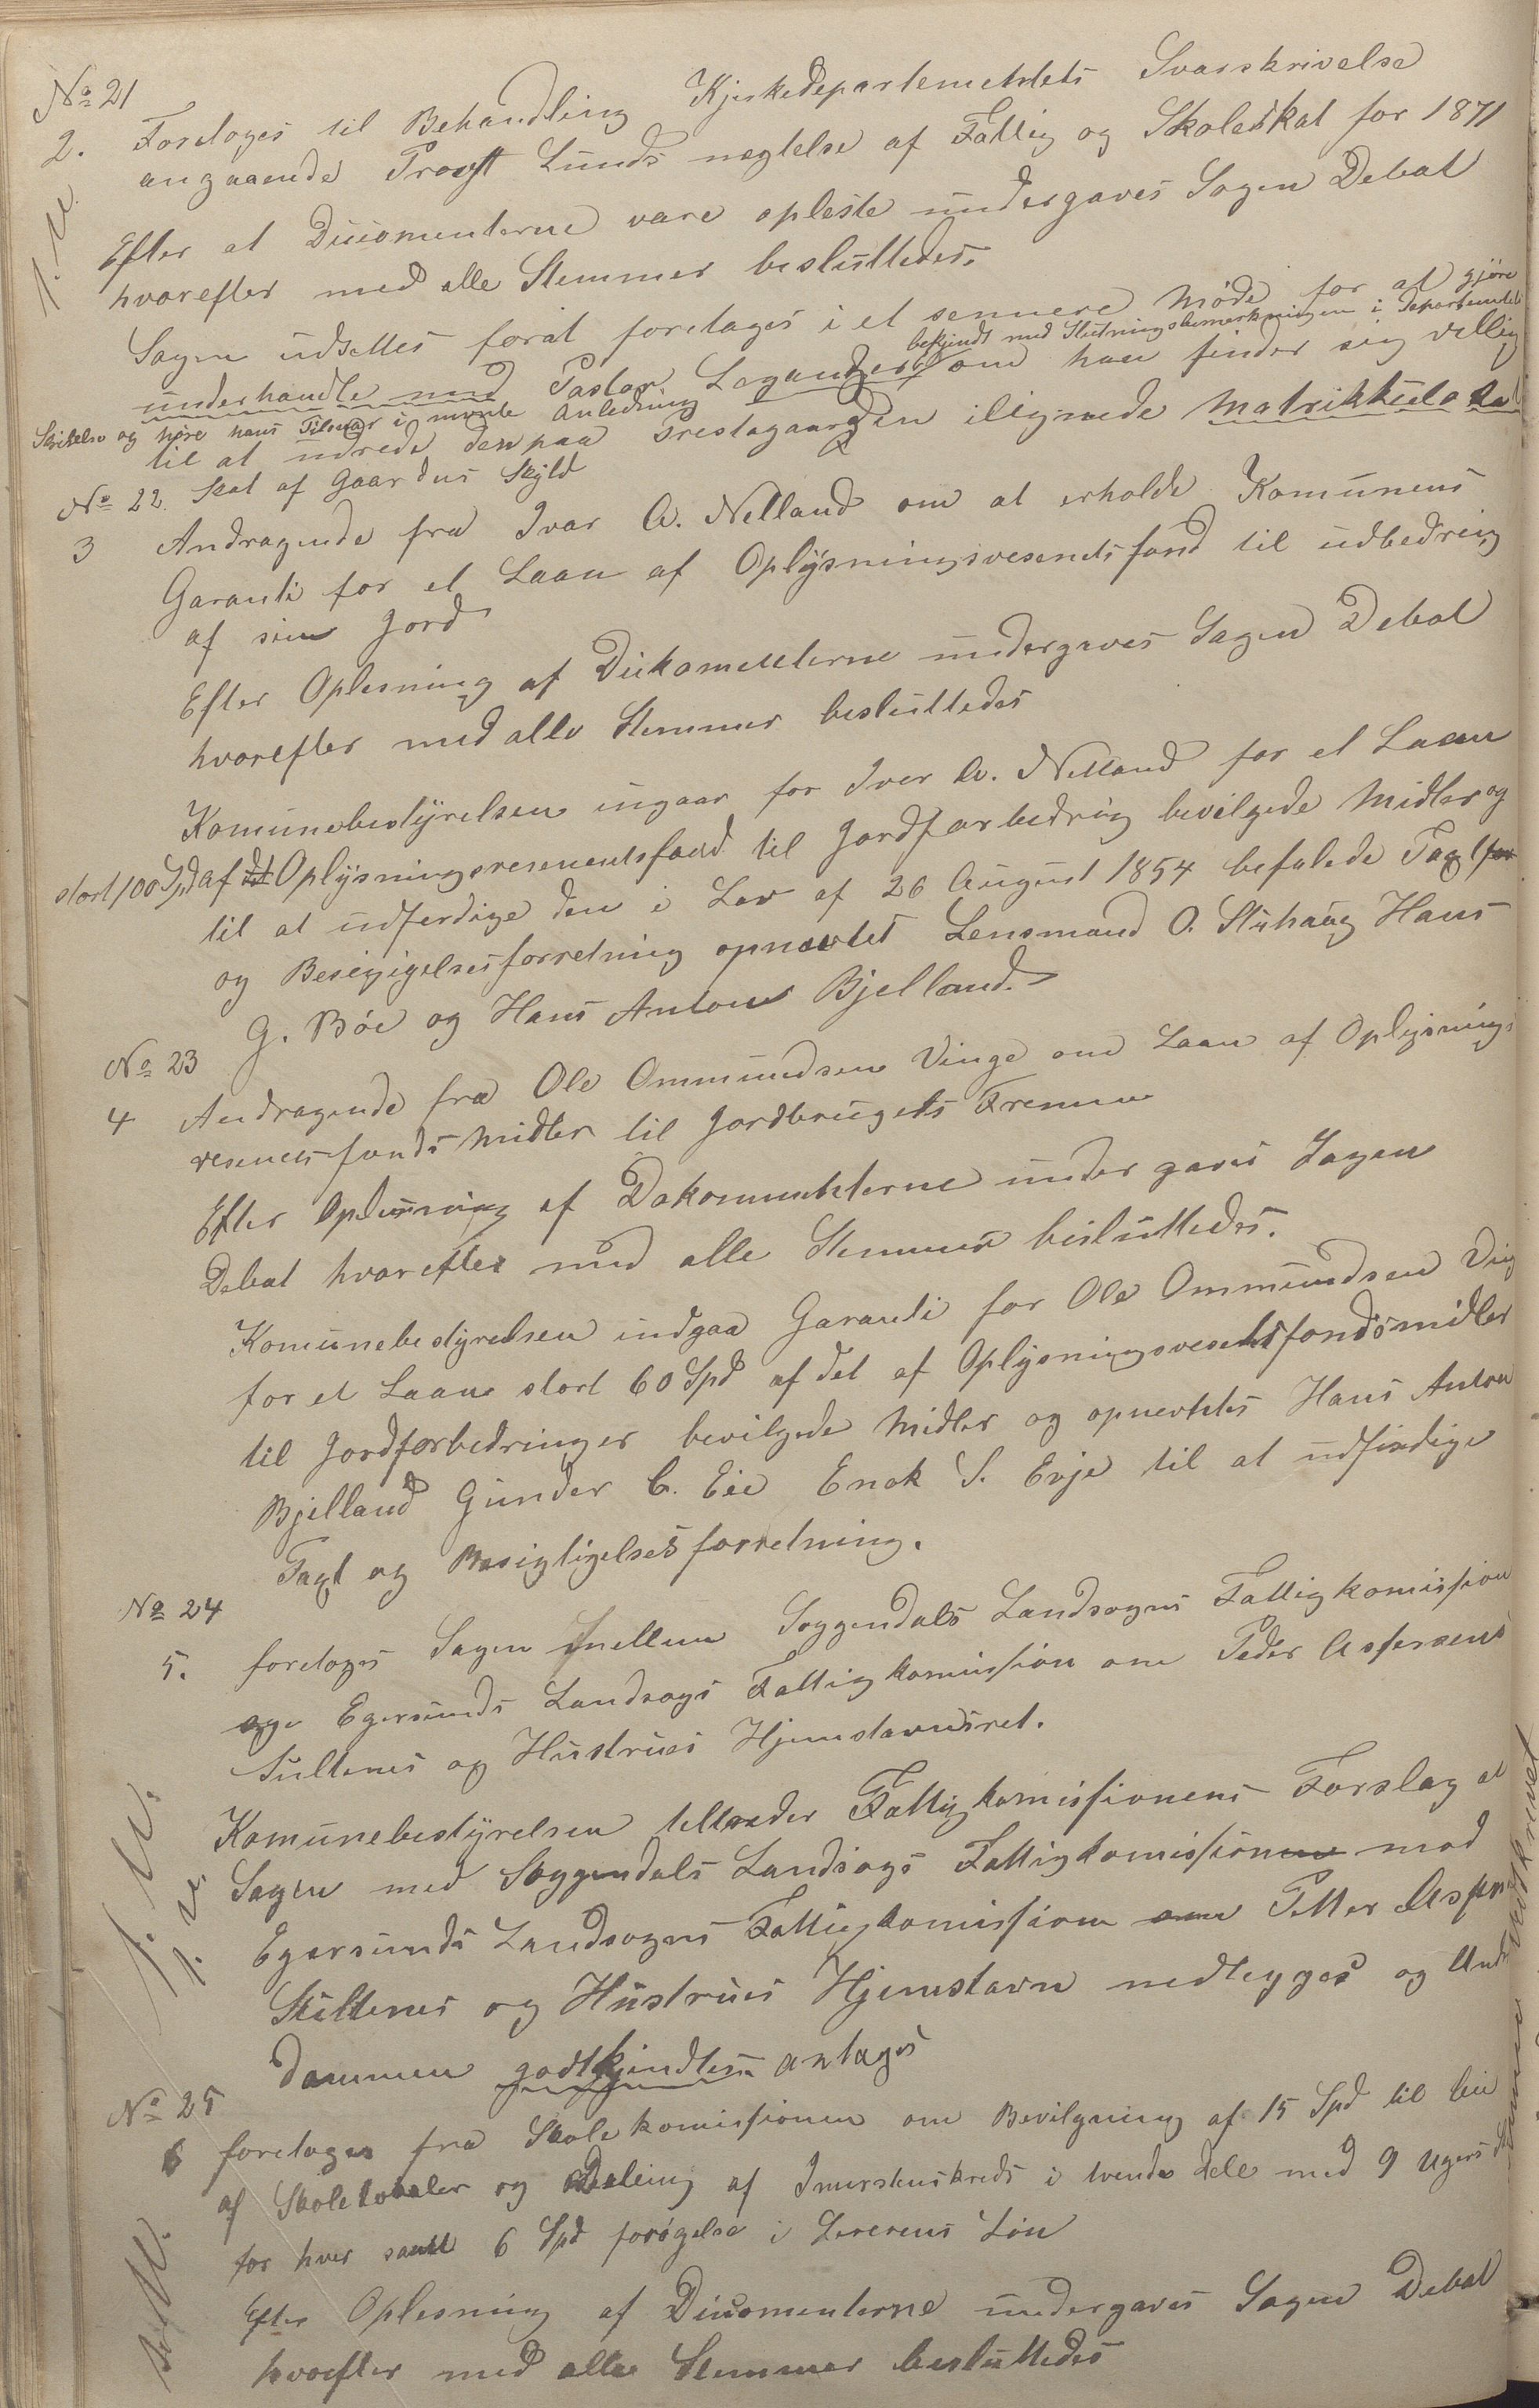 No 21
2. Foretoges til Behandling Kjerkedepartementets Svarskrivelse
angaaende Provst Lunds negtelse af Fattig og Skoleskat for 1871
Efter at Ducomenterne vare opleste undergaves Sagen Debat
hvorefter med alle Stemmer besluttedes.
Sagen udsettes forat foretages i et sennere Møde for at gjøre
bekjendt med Slutningsbemerkningen i Departemtets
underhandle med Pastor Legander om han finder sig villig
Skrivelse og høre hans Tilsvar i mente Anledning
til at udrede den paa Prestegaarden ilignede Matrikkulskat
Skat af Gaardens Skyld
No 22.
3 Andragende fra Ivar A. Nelland om at erholde Komunens
Garanti for et Laan af Oplysningsvesenets fond til udbedring
af sin Jord
Efter Oplesning af Dukomenterne undergaves Sagen Debat
hvorefter med alle Stemmer besluttedes
Komunebestyrelsen ingaar for Iver A. Nelland for et Laan
stort 100 Spd af det Oplysningsvesenentsfond til Jordforbedring bevilgede Midler og
til at udferdige den i Lov af 26 August 1854 befalede Taxt for
og Besigtigelsesforretning opnevtes Lensmand O. Stuhaug Hans
G. Böe og Hans Anton Bjelland.
No 23
4 Andragende fra Ole Ommundsen Vinge om Laan af Oplysnings
vesenets fonds Midler til Jordbrugets Fremme
Efter Oplesning af Dokomenterne under gaves Sagen
Debat hvorefter med alle Stemmer besluttedes.
Komunebestyrelsen indgaa Garanti for Ole Ommundsen Ving
for et Laan stort 60 Spd af det af Oplysningsvesentsfondsmidler
til Jordforbedringer bevilgede Midler og opnevntes Hans Anton
Bjelland Gunder C. Eie Enok S. Evje til at udferdige
Taxt og Besigtigelsesforretning.
No 24
5. foretoges Sagen mellem Soggendals Landsogns Fattigkomission
og Egersunds Landsogs Fattigkomission om Peder Aspersens
Stiltenes og Hustrues Hjemstavnsret.
Komunebestyrelsen tiltreder Fattigkomissionens Forslag at
Sagen med Soggendals Landsogs Fattigkomission mod
Egersunds Landsogns Fattigkomission om Petter Aspers
Stiltenes og Hustrues Hjemstavn nedlegges og Under
dommen godtkjendtes antages
No 25
6 foretoges fra Skolekomissionen om Bevilgning af 15 Spd til leie
af Skolelokaler og Deling af kreds i tvende dele med 9 Ugers
for hver samt 6 Spd forøgelse i Lererens Løn
Efter Oplesning af Ducomenterne undergaves Sagen Debat
hvorefter med alle Stemmer besluttedes